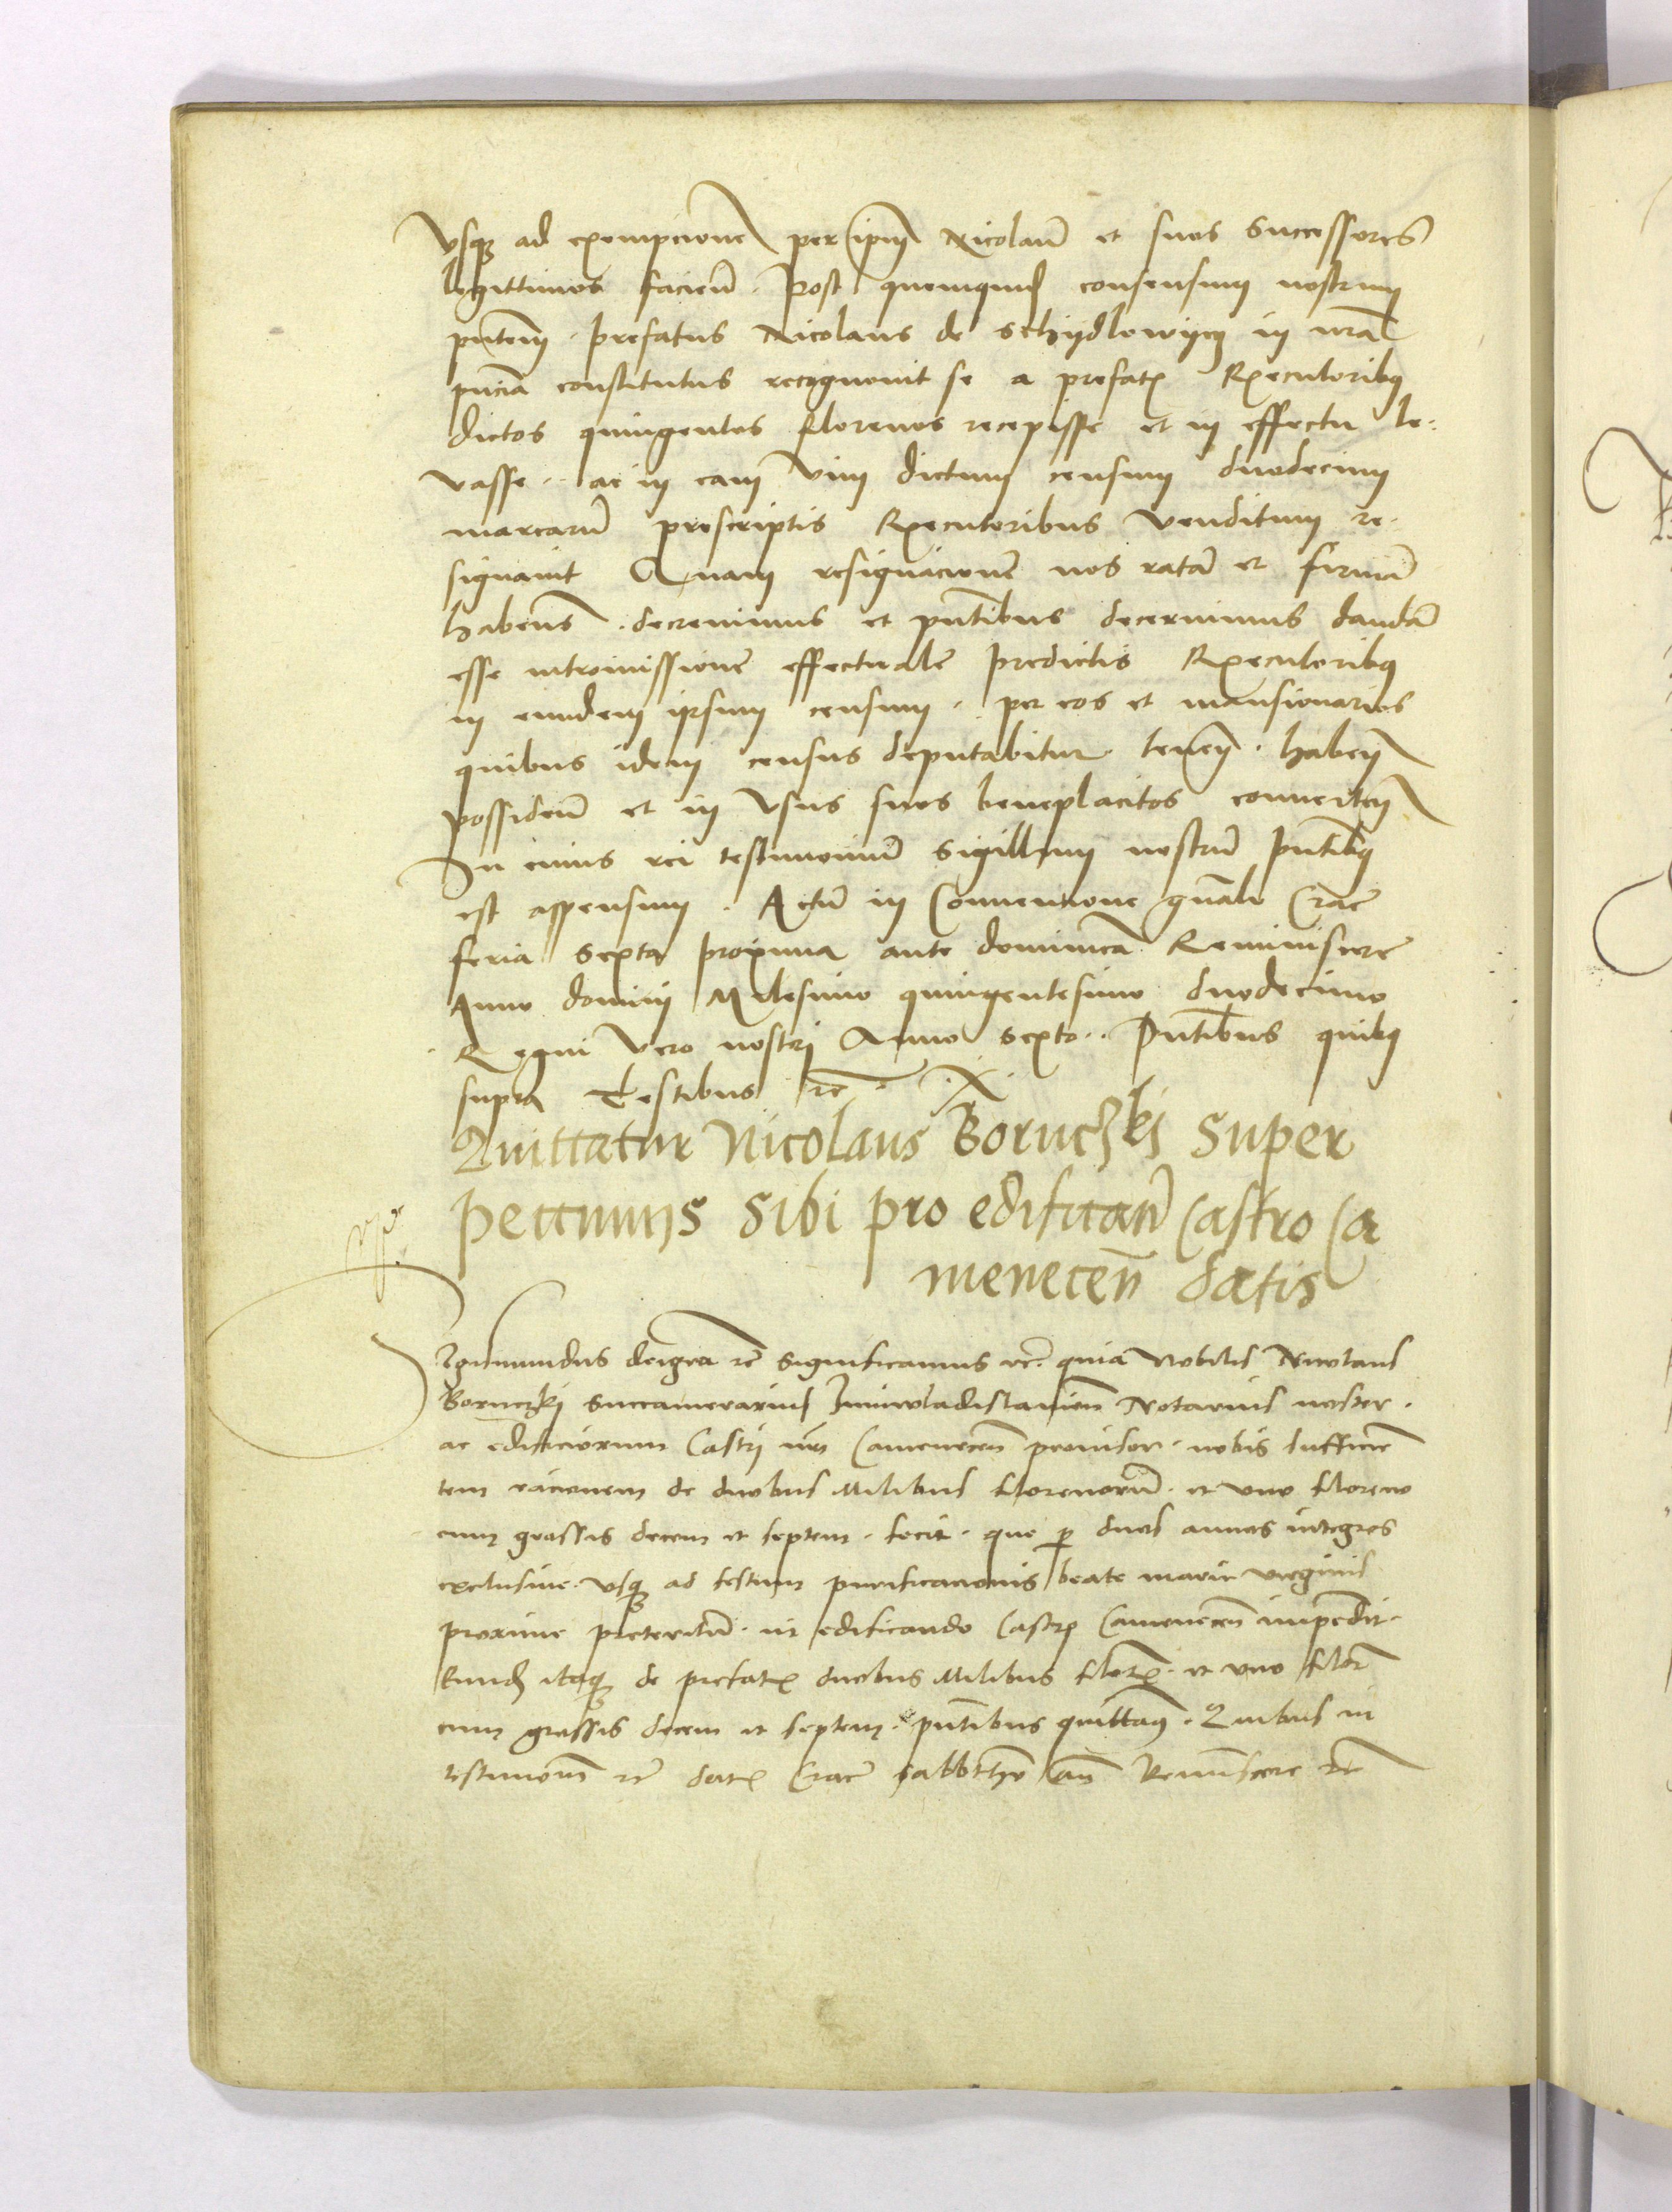 Vsq; ad exempcionē per ip̄m Nicolaū et suos successores
legittimos facienď. Post quemquid̄ consensum nostrum
pn̄tem. prefatus Nicolaus de Schijdlowijcz in nr̄a
pn̄cia constitutus recognouit se a prefatꝭ Executoribꝰ
dictos quingentos florenos recepisse et in effectu le-
vasse. ac in eam vim dictum censum duodecim
marcarū prescriptis Executoribus venditum re-
signauit Quam resignacionē nos ratā et firmā
habentes. decreuimus et pn̄tibus decernimus dandā
esse intromissionē effectualē predictis Executoribꝰ
in eundem ipsum censum. per eos et mansionarios
quibus idem census deputabitur. teneñ. habeñ
possideñ et in vsus suos beneplacitos conuerteñ
In cuius rei testimoniū sigillum nostrū pn̄tibꝰ
est appensum. Actū in Conuentione gn̄ali Crac̄
feria sexta proxima ante dominicā Reminiscere
Anno domini Milesimo quingentesimo duodecimo
Regni vero nostri Anno sexto.. Pn̄tibus quibꝰ
supra testibus ⁊c̄.
Quittatur Nicolaus Boruczki super
pecunijs sibi pro edificañ Castro Ca
meneceñ datis
Sigismundus dei gr̄a ⁊c̄ significamus ⁊c̄. quia Nobilis Nicolaus
Boruczki succamerarius Juniwladislauieñ Notarius noster.
ac edificiorum Castri nr̄i Cameneceñ prouisor. nobis sufficien̄
tem racionem de duobus Milibus florenorū. et vno floreno
cum grossis decem et septem. fecit. que ꝑ duos annos integros
exclusiue. vsq; ad festum purificacionis beate marie virginis
proxime preteritū. in edificando Castro Cameneceñ impendit.
Eund̄ itaq; de prefatꝭ duobus Milibus florꝭ. et vno flor̄
cum grossis decem et septem. pn̄tibus quittamꝰ. Quibus in
testimoniū ⁊c̄ datꝭ Crac̄ sabbatho an̄ Reminiscere ⁊c̄